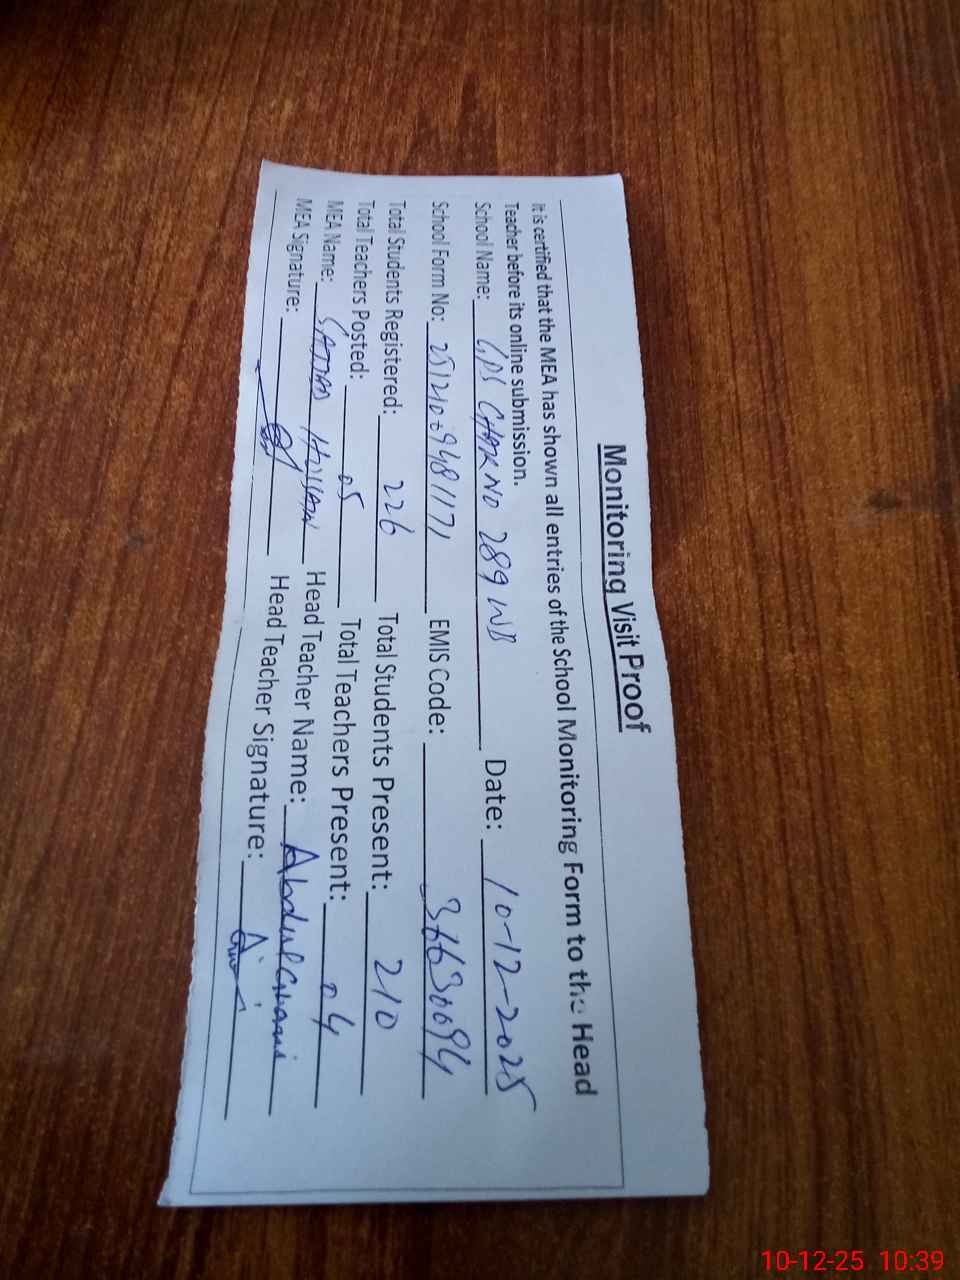 Monitoring Visit Proof
It is certified that the MEA has shown all entries of the School Monitoring Form to the Head
Teacher before its online submission.
School Name: GPS CHAK NO 289 WB Date: 10-12-2025
School Form No: EMIS Code: 36630094
Total Students Registered: 226 Total Students Present: 210
Total Teachers Posted: 05 Total Teachers Present: 04
MEA Name: HUSSAIN Head Teacher Name: Abdul Ghani
MEA Signature: Head Teacher Signature:
10-12-25 10:39